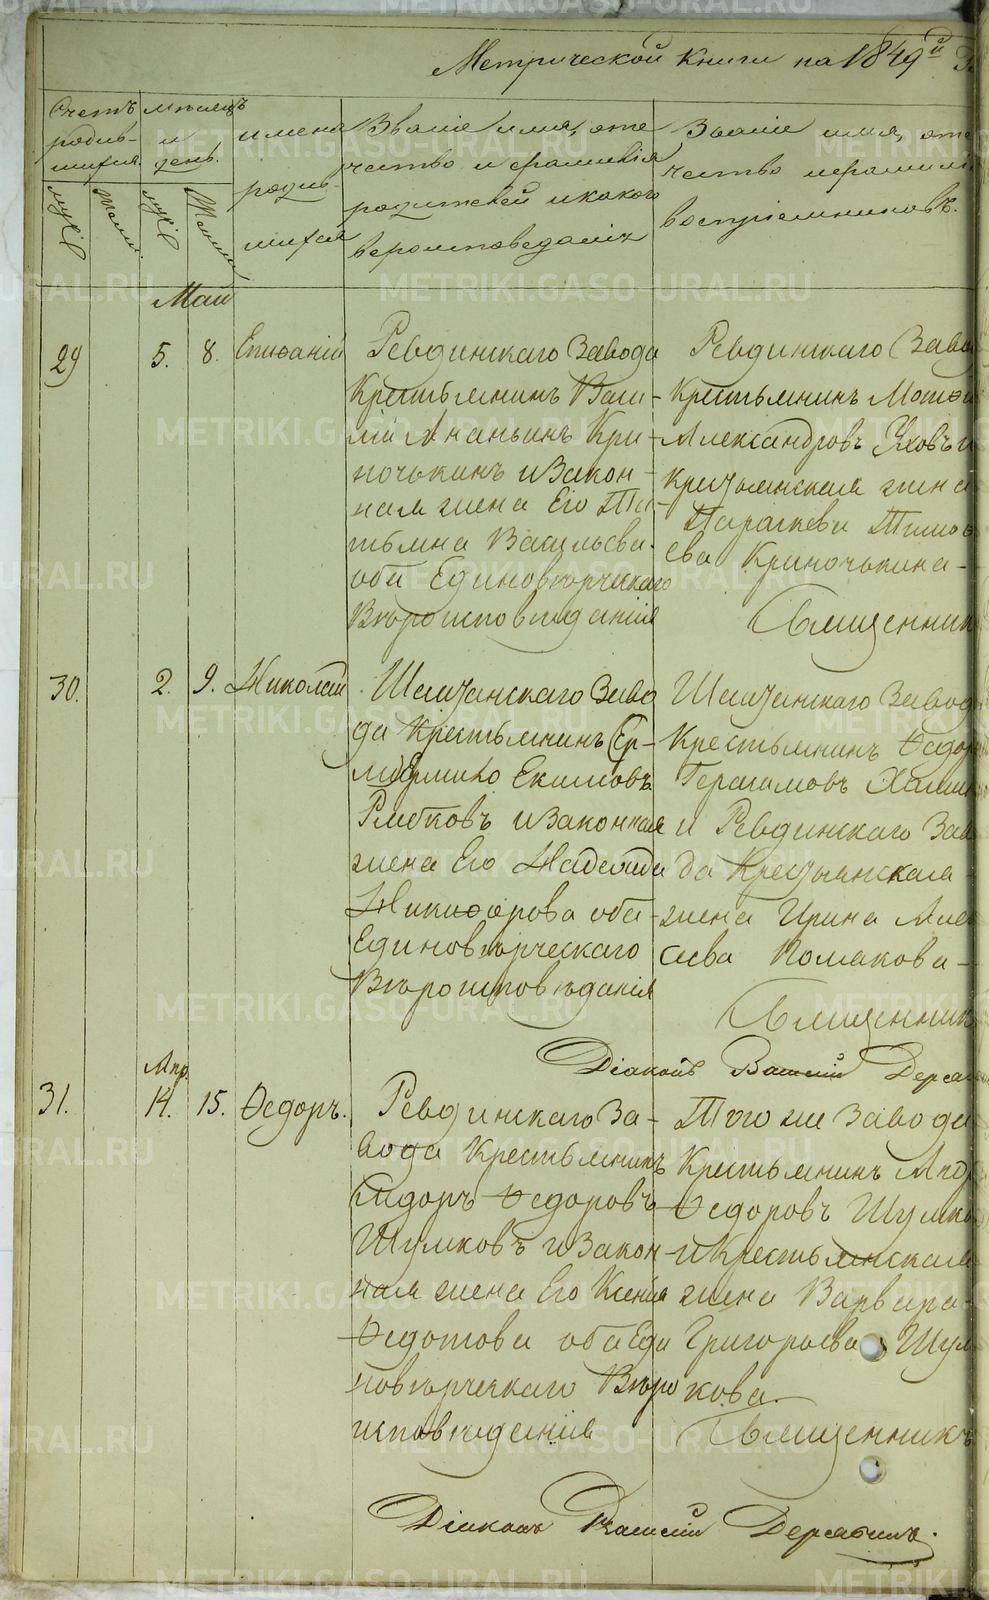 Метрической книги на 1849й
Счетъ родившихся
мужс.
женс.
месяцъ и день
имена родившихся
Званіе имя, отечество и фамилія родителей и какого вероисповеданія
Званіе имя, отечество и фамилія воспріемниковъ.
Маи
29
5.
8.
Епифаній
Ревдинскаго Завода
Крестьянинъ Васи-
лій Ананьинъ Кри-
ночькинъ и Закон-
ная жена Его Та-
тьяна Васильева
оба Единоверческаго
Вѣроисповѣданія
Ревдинскаго Заво
Крестьянинъ
Александровъ Уховъ и
крестьянская жена
Параскева
ева Криночькина-
Священник
30.
2.
9.
Николай
Шайтанскаго Заво
да Крестьянинъ
Екимовъ
Рябковъ и Законная
жена Его Надежда
Никифорова оба
Единовѣрческаго
Вѣроисповѣданія
Шайтанскаго Завод
Крестьянинъ Федор
Герасимовъ
и Ревдинскаго Заво
да Крестьянская
жена Ирина Алек
сеева
Священник
Діаконъ Василій Деряб
Апр.
31.
14.
15.
Федоръ.
Ревдинскаго За-
вода Крестьянинъ
Сидоръ Федоровъ
Шумковъ и Закон-
ная жена Его Ксенія
Федотова оба Еди
новѣрческаго Вѣро
исповѣданія
Того же Завода
Крестьянинъ Андр
Федоровъ Шумко
и Крестьянская
жена Варвара
Григорьева Шум
кова.
Священникъ
Діаконъ Василій Дерябинъ.
METRIKI.GASO-URAL.RU